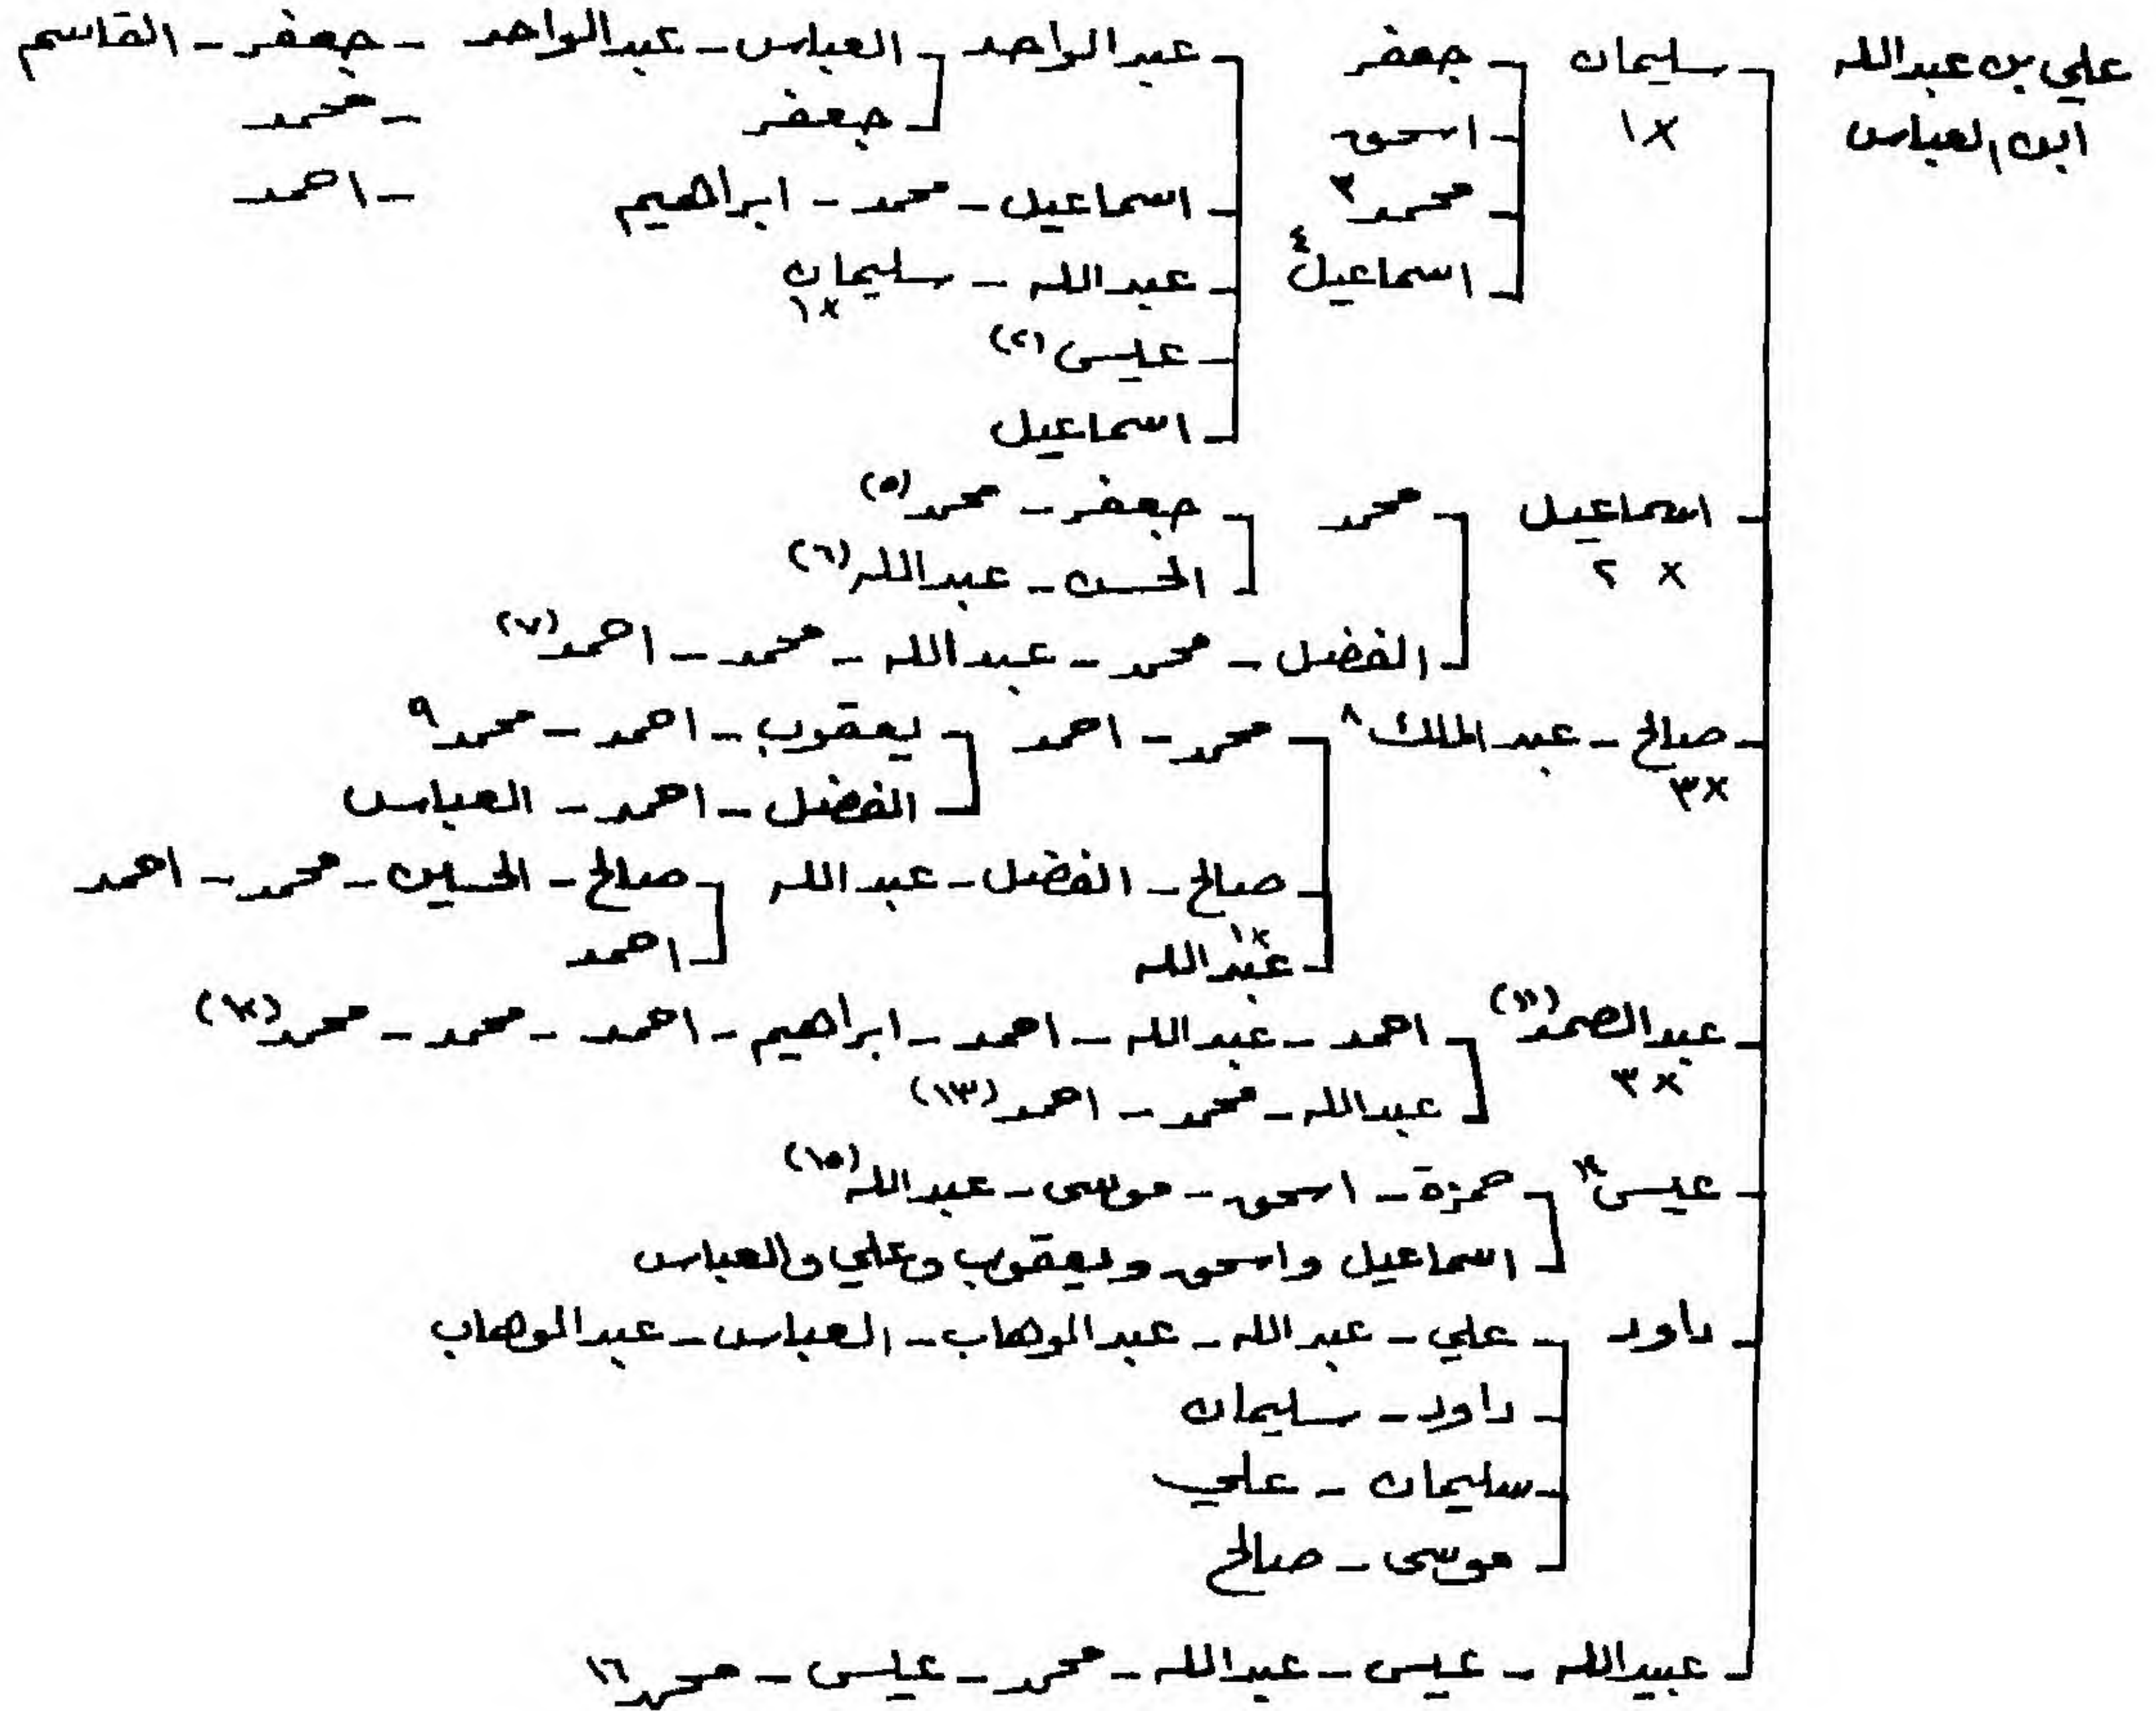 علي بن عبدالله - سليمان - جعفر - عبدالواحد - العباس - عبدالواحد - جعفر - القاسم
ابن العباس ×١ - اسحق - جعفر - محمد
- محمد٣ - اسماعيل - محمد - ابراهيم - احمد
- اسماعيل٤ - عبدالله - سليمان
×١
- عيسى (٢)
- اسماعيل
- اسماعيل - محمد - جعفر - محمد (٥)
× ٢ - الحسن - عبدالله (٦)
- الفضل - محمد - عبدالله - محمد - احمد (٧)
- صالح - عبد الملك ٨ - محمد - احمد - يعقوب - احمد - محمد ٩
×٣ - الفضل - احمد - العباس
- صالح - الفضل - عبد الله - صالح - الحسين - محمد - احمد
- عبدالله - احمد
- عبدالصمد (١١) - احمد - عبدالله - احمد - ابراهيم - احمد - محمد - محمد
×٣ - عبدالله - محمد - احمد (١٣)
- عيسى - حمزة - اسحق - موسى - عبدالله (١٥)
- اسماعيل واسحق ويعقوب وعلي والعباس
- داود - علي - عبدالله - عبدالوهاب - العباس - عبدالوهاب
- داود - سليمان
- سليمان - علي
- موسى - صالح
- عبيدالله - عيسى - عبدالله - محمد - عيسى - محمد ١٦